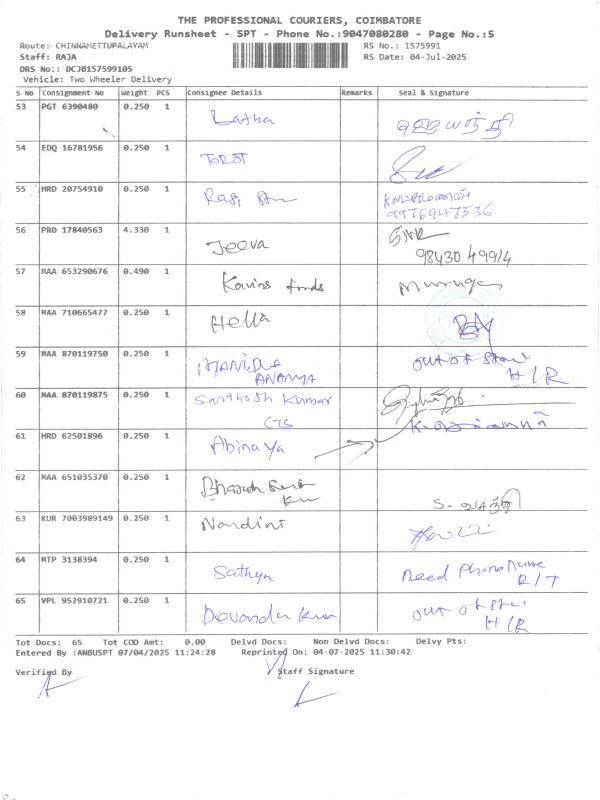 THE PROFESSIONAL COURIERS, COIMBATORE
Delivery Runsheet - SPT - Phone No.:9047080280 - Page No.:5
Route: CHINNAMETTUPALAYAM RS No.: 1575991
Staff: RAJA RS Date: 04-Jul-2025
DRS No.: DCJB157599105
Vehicle: Two Wheeler Delivery
S No Consignment No Weight PCS Consignee Details Remarks Seal & Signature
53 PGT 6390480 0.250 1 Latha
54 EDQ 16781956 0.250 1
55 HRD 20754910 0.250 1
9976947536
56 PRO 17840563 4.330 1 Jeeva GNR
98430 49914
57 MAA 653290676 0.490 1 foods Murugan
58 MAA 710665477 0.250 1 Hella
59 MAA 870119750 0.250 1 out of
ANANYA H/R
60 MAA 870119875 0.250 1 Santhosh Kumar
CTS
61 HRD 62501896 0.250 1 Abinaya
62 MAA 651035370 0.250 1
63 KUR 7003989149 0.250 1 Nandini
64 MTP 3138394 0.250 1 Sathya Need Phone
R/T
65 VPL 952910721 0.250 1 out of
H/R
Tot Docs: 65 Tot COD Amt: 0.00 Delvd Docs: Non Delvd Docs: Delvy Pts:
Entered By :ANBUSPT 07/04/2025 11:24:28 Reprinted On: 04-07-2025 11:30:42
Verified By Staff Signature